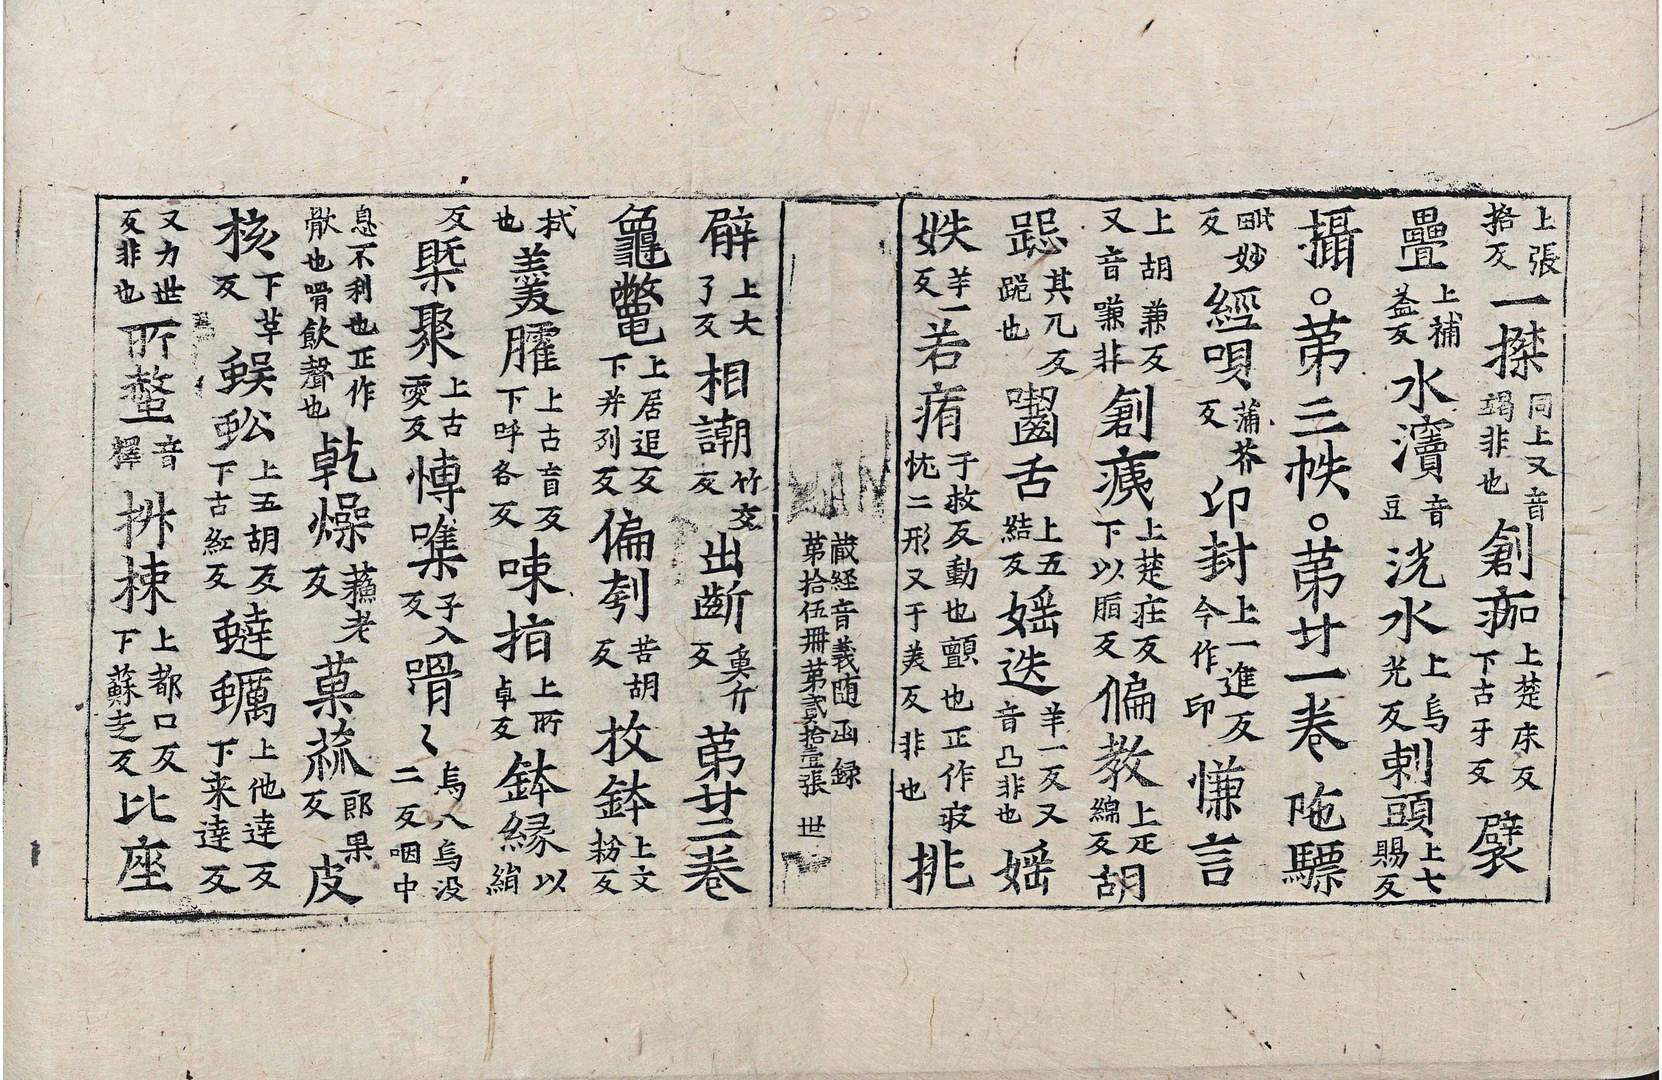 上張挌反一搩同上又音竭非也創痂上楚床反下古牙反襞
疊上補益反水瀆音豆洸水上烏光反剌頭上七賜反
攝○第三帙○第廿一卷陁驃
毗妙反經唄蒲芥反印封上一進反今作印慊言
上胡兼反又音嗛非創痍上楚莊反下以脂反偏教上疋綿反胡
跽其兀反跪也嚙舌上五結反婬迭羊一反又音凸非也婬
妷羊一反若痏于救反動也顫也正作疻忱二形又于美反非也挑
藏経音義随函録第拾伍冊第貳拾壹張 世
擗上大了反相謿竹交反出斷魚斤反第廿二卷
龜鼈上居追反下并列反偏刳苦胡反抆鉢上文粉反
拭也羹臛上古盲反下呼各反唻指上所卓反鉢緣以絹
反槩聚上古愛反愽噍子入反嗗〻烏八烏没二反咽中
息不利也正作㱁也嗗飲聲也乾燥蘓老反菓蓏郎果反皮
核下草反蜈蚣上五胡反下古紅反䗊蠣上他達反下来達反
又力世反非也所螫音釋枓栜上都口反下蘇走反比座